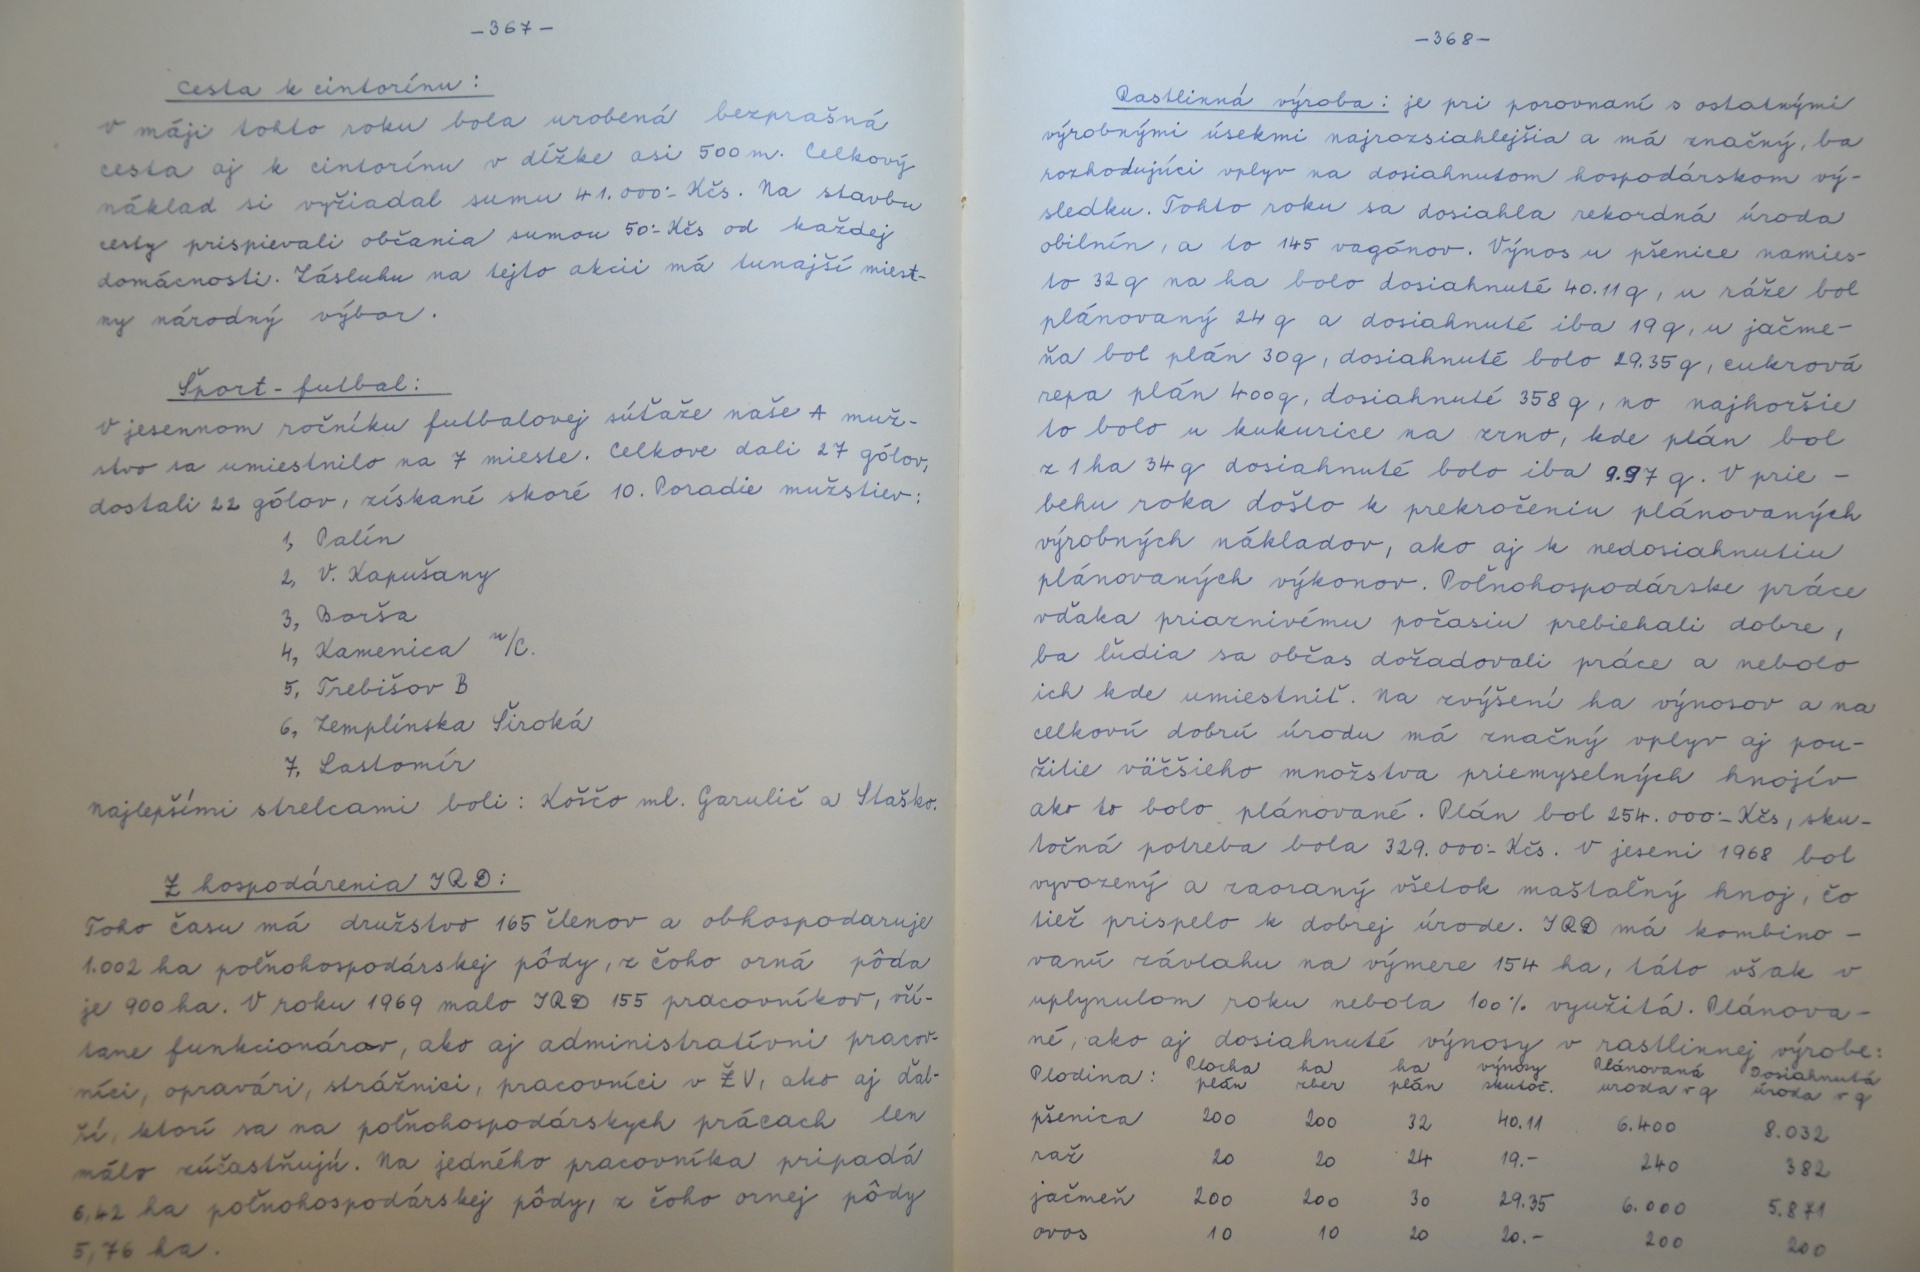 -367-
Cesta k cintorínu:
V máji tohto roku bola urobená bezprašná
cesta aj k cintorínu v dĺžke asi 500 m. Celkový
náklad si vyžiadal sumu 41.000:- Kčs. Na stavbu
cesty prispievali občania sumou 50:- Kčs od každej
domácnosti. Zásluhu na tejto akcii má tunajší miest-
ny národný výbor.
Šport - futbal:
V jesennom ročníku futbalovej súťaže naše A muž-
stvo sa umiestnilo na 7 mieste. Celkove dali 27 gólov,
dostali 22 gólov, získané skoré 10. Poradie mužstiev:
1, Palín
2, V. Kapušany
3, Borša
4, Kamenica n/C.
5, Trebišov B
6, Zemplínska Široká
7, Lastomír
Najlepšími strelcami boli: Koščo ml. Garulič a Staško.
Z hospodárenia JRD:
Toho času má družstvo 165 členov a obhospodaruje
1.002 ha poľnohospodárskej pôdy, z čoho orná pôda
je 900 ha. V roku 1969 malo JRD 155 pracovníkov, včí-
tane funkcionárov, ako aj administratívni pracov-
níci, opravári, strážnici, pracovníci v ŽV, ako aj ďal-
ší, ktorí sa na poľnohospodárskych prácach len
málo zúčastňujú. Na jedného pracovníka pripadá
6,42 ha poľnohospodárskej pôdy, z čoho ornej pôdy
5,76 ha.
-368-
Rastlinná výroba: je pri porovnaní s ostatnými
výrobnými úsekmi najrozsiahlejšia a má značný, ba
rozhodujúci vplyv na dosiahnutom hospodárskom vý-
sledku. Tohto roku sa dosiahla rekordná úroda
obilnín, a to 145 vagónov. Výnos u pšenice namies-
to 32 q na ha bolo dosiahnuté 40.11 q, u ráže bol
plánovaný 24 q a dosiahnuté iba 19 q, u jačme-
ňa bol plán 30 q, dosiahnuté bolo 29.35 q, cukrová
repa plán 400 q, dosiahnuté 358 q, no najhoršie
to bolo u kukurice na zrno, kde plán bol
z 1 ha 34 q dosiahnuté bolo iba 9.97 q. V prie-
behu roka došlo k prekročeniu plánovaných
výrobných nákladov, ako aj k nedosiahnutiu
plánovaných výkonov. Poľnohospodárske práce
vďaka priaznivému počasiu prebiehali dobre,
ba ľudia sa občas dožadovali práce a nebolo
ich kde umiestniť. Na zvýšení ha výnosov a na
celkovú dobrú úrodu má značný vplyv aj pou-
žitie väčšieho množstva priemyselných hnojív
ako to bolo plánované. Plán bol 254.000:- Kčs, sku-
točná potreba bola 329.000:- Kčs. V jeseni 1968 bol
vyvozený a zaoraný všetok maštaľný hnoj, čo
tiež prispelo k dobrej úrode. JRD má kombino-
vanú závlahu na výmere 154 ha, táto však v
uplynulom roku nebola 100% využitá. Plánova-
né, ako aj dosiahnuté výnosy v rastlinnej výrobe:
Plodina: Plocha plán ha zber ha plán výnosy skutoč. Plánovaná úroda v q Dosiahnutá úroda v q
pšenica 200 200 32 40.11 6.400 8.032
raž 20 20 24 19.- 240 382
jačmeň 200 200 30 29.35 6.000 5.871
ovos 10 10 20 20.- 200 200